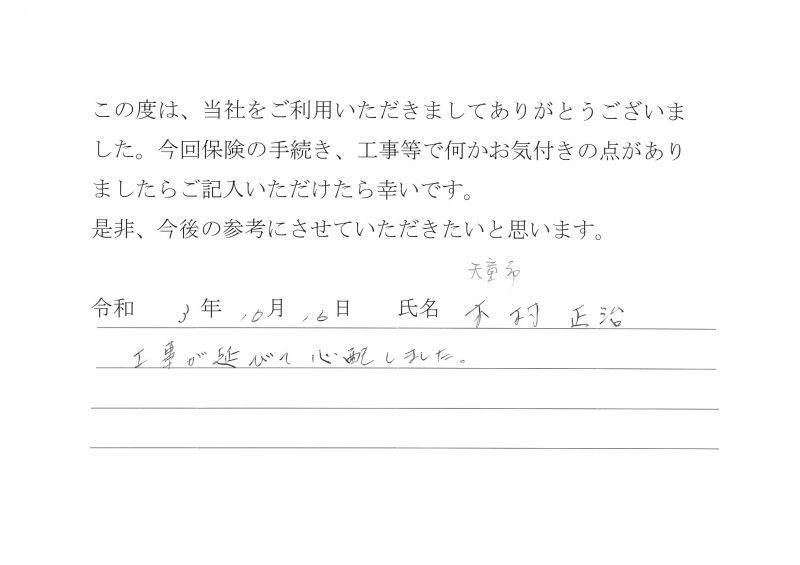 この度は、当社をご利用いただきましてありがとうございま
した。今回保険の手続き、工事等で何かお気付きの点があり
ましたらご記入いただけたら幸いです。
是非、今後の参考にさせていただきたいと思います。
天童市
令和 3年 10月 16日 氏名 木村 正治
工事が延びて心配しました。